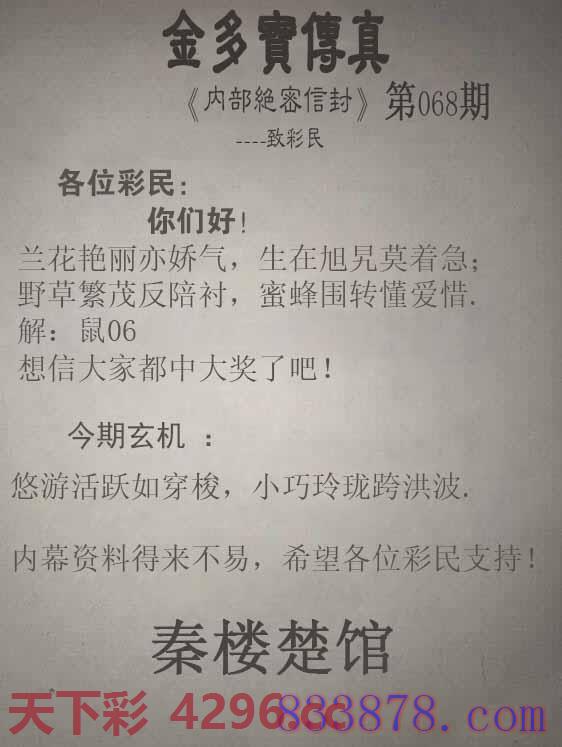 金多寶傳真
《内部絶密信封》第068期
----致彩民
各位彩民:
你们好!
兰花艳丽亦娇气，生在旭旯莫着急;
野草繁茂反陪衬，蜜蜂围转懂爱惜.
解：鼠06
想信大家都中大奖了吧！
今期玄机 ：
悠游活跃如穿梭，小巧玲珑跨洪波.
内幕资料得来不易，希望各位彩民支持!
秦楼楚馆
天下彩 4296.cc
883878.com